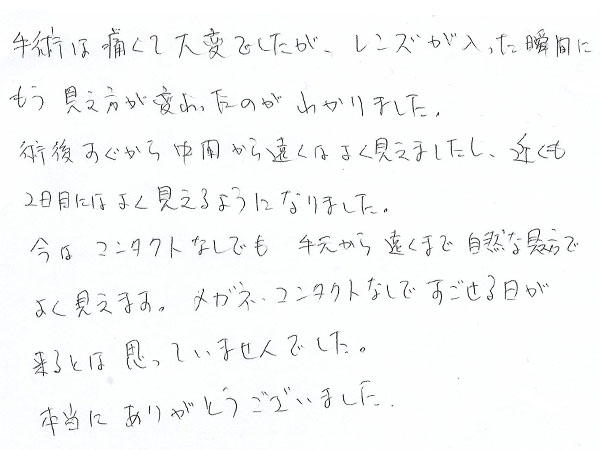 手術は痛くて大変でしたが、レンズが入った瞬間に
もう見え方が変わったのがわかりました。
術後すぐから中間から遠くはよく見えましたし、近くも
2日目にはよく見えるようになりました。
今はコンタクトなしでも手元から遠くまで自然な見え方で
よく見えます。メガネ、コンタクトなしですごせる日が
来るとは思っていませんでした。
本当にありがとうございました。